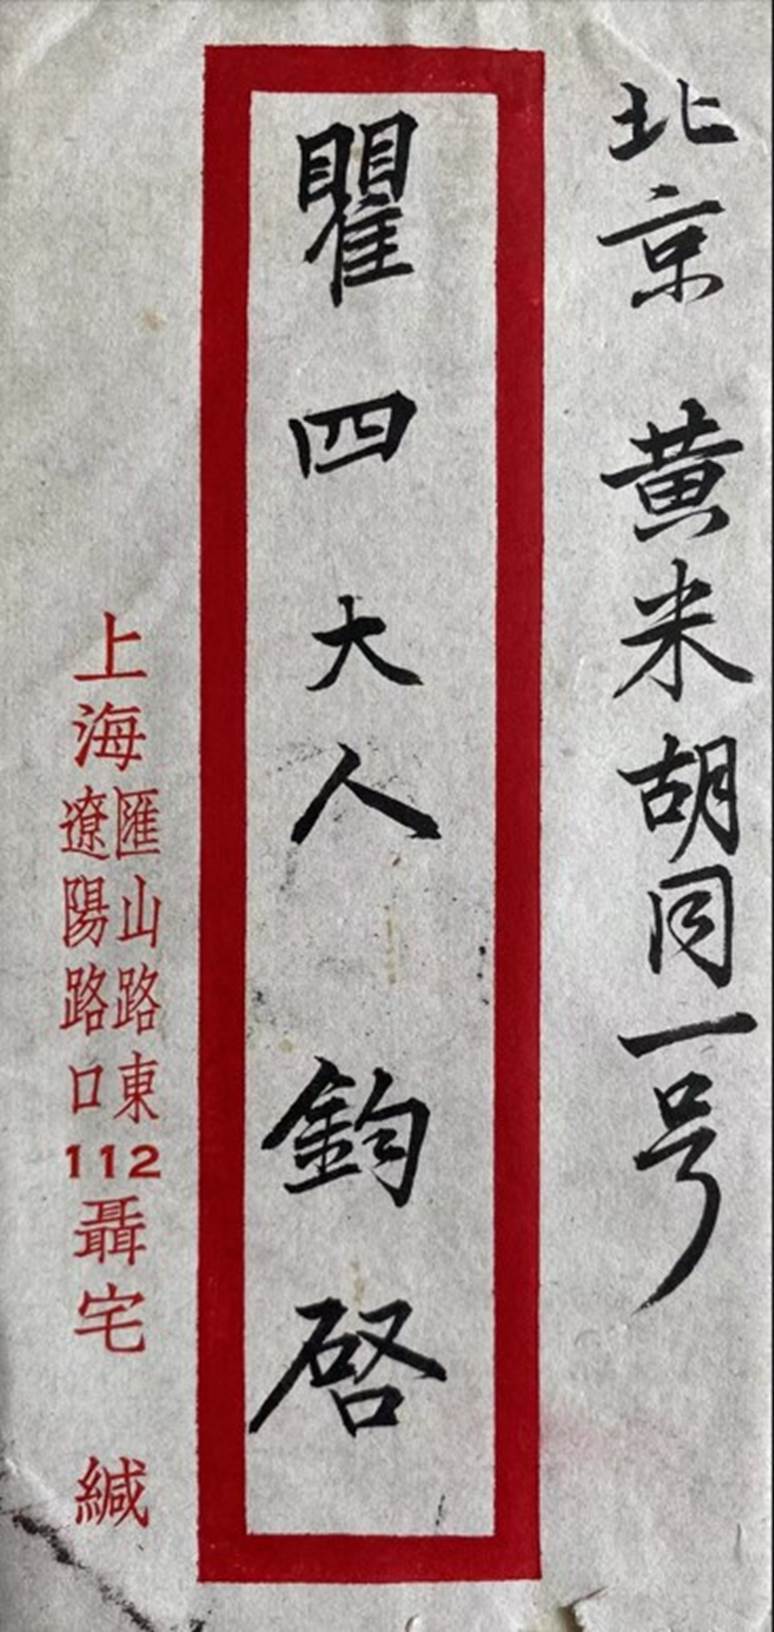 北京 黄米胡同一号
瞿四大人 鈞啓
上海
匯山路東
遼陽路口
112
聶宅 緘